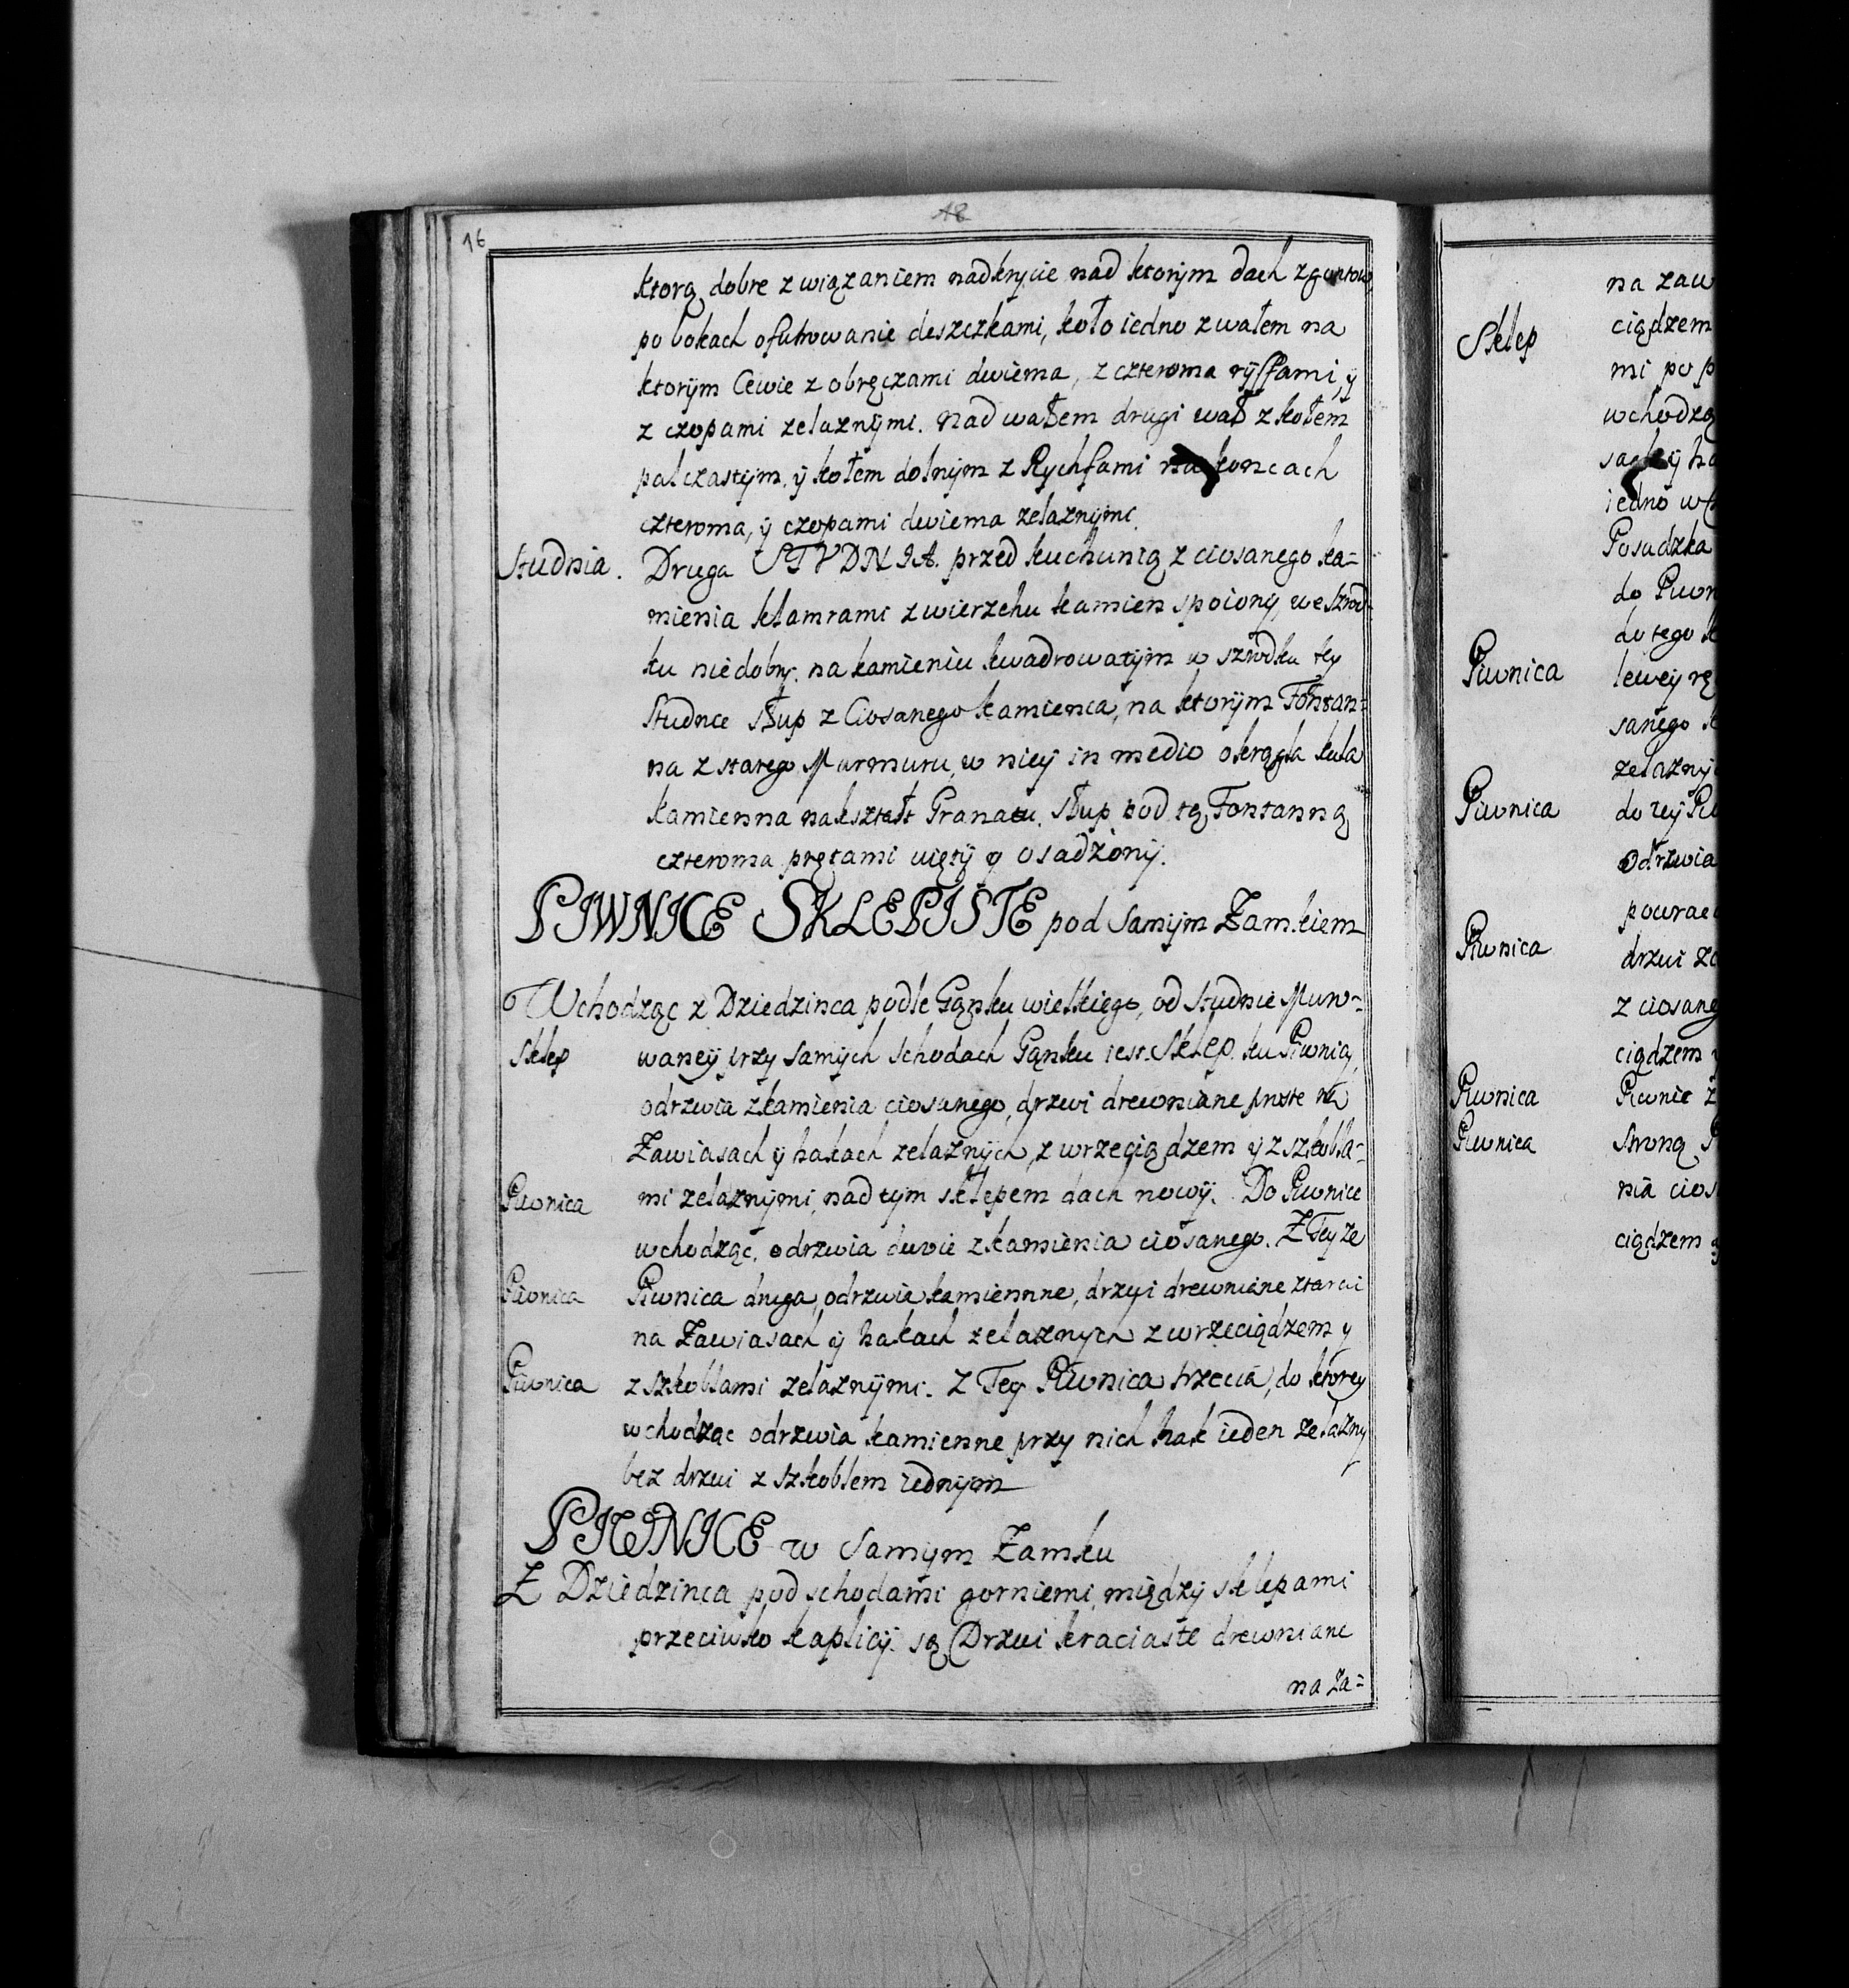 18
16
ktorą dobre z wiązaniem nadkrycie nad ktorym dach z gontow
po bokach ofutrowanie deszczkami, koło iedno z wałem na
ktorym Cewie z obręczami dwiema, z czteroma ryffami, y
z czopami zelaznymi. nad wałem drugi wał z kołem
palczastym, y kołem dolnym z Rychfami na koncach
czteroma, y czopami dwiema zelaznymi.
Studnia. Druga STVDNIA. przed kuchnią z ciosanego ka=
mienia klamrami z wierzchu kamien spoiony, we szrod=
ku niedobry. na kamieniu kwadrowatym w szrodku tey
Studnce Słup z Ciosanego kamienca, na ktorym Fontan=
na z starego Marmuru, w niey in medio okrągła kula
kamienna na kształt Granatu. Słup pod tą Fontanną
czteroma prętami uięty y osadzony.
PIWNICE SKLEPISTE pod Samym Zamkiem
Wchodząc z Dziedzinca podle Ganku wielkiego, od studnie Muro=
Sklep waney przy samych schodach Ganku iest. Sklep. ku Piwnią,
odrzwia z kamienia ciosanego, drzwi drewniane proste na
Zawiasach y hakach zelaznych, z wrzeciądzem y z szkobla=
Piwnica mi zelaznymi, nad tym sklepem dach nowy. Do Piwnice
wchodząc, odrzwia dwoie z kamienia ciosanego. Z Tey ze
Piwnica Piwnica druga, odrzwia kamiennne, drzwi drewniane ztarcic
na Zawiasach y hakach zelaznych z wrzeciądzem y
Piwnica z szkoblami zelaznymi. Z Tey Piwnica trzecia, do ktorey
wchodząc odrzwia kamienne przy nich hak ieden zelazny
bez drzwi z szkoblem iednym
PIWNICE w Samym Zamku
Z Dziedzinca pod schodami gorniemi między sklepami
przeciwko kaplicy. są Drzwi kraciaste drewniane
na Za=
na zaw
Sklep ciądzem
mi po p
wchodzą
iedno w
Posadzka
do Piwn
do tego k
Piwnica lewey rę
sanego k
zelazny
Piwnica do tey Pi
Odrzwia
powrac
Piwnica drzwi za
z ciosaneg
ciądzem
Piwnica Piwnic z
Piwnica Stroną P
nia cios
ciądzem